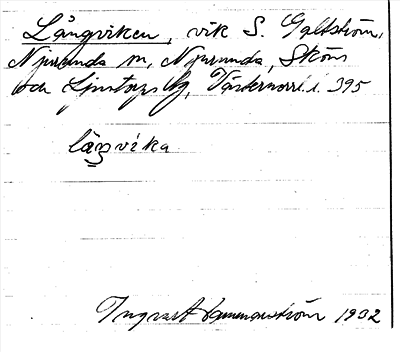 Långviken, vik S. Galtström,
Njurunda sn, Njurunda, Sköns
och Ljustorps tg, Västernorrl. l. 395
Ingvar Hammarström 1932